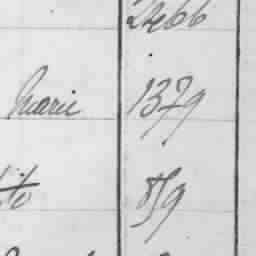 2466
Marie 1379
dito 859